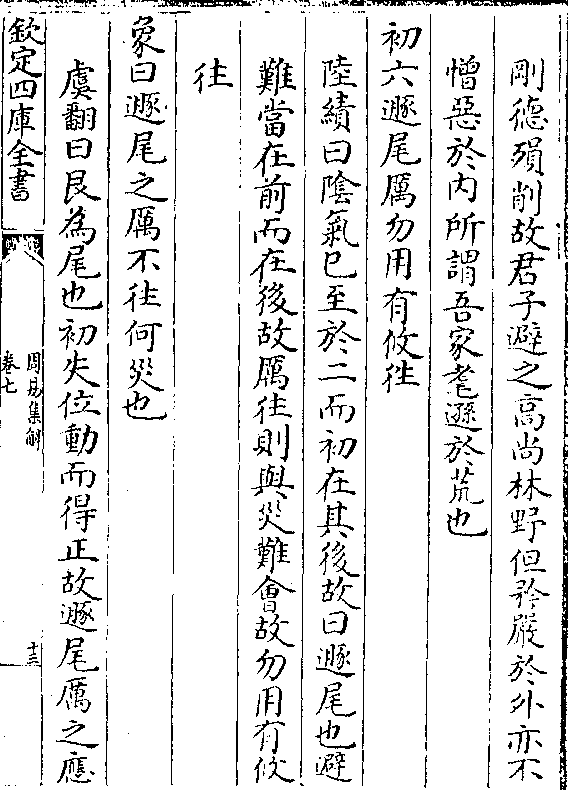 剛德殞削故君子避之高尚林野但矜嚴於外亦不
憎惡於内所謂吾家耄遜於荒也
初六遯尾厲勿用有攸往
陸績曰陰氣已至於二而初在其後故曰遯尾也避
難當在前而在後故厲往則與災難會故勿用有攸
往
象曰遯尾之厲不往何災也
虞翻曰艮為尾也初失位動而得正故遯尾厲之應
欽定四庫全書
周易集解
卷七
十三